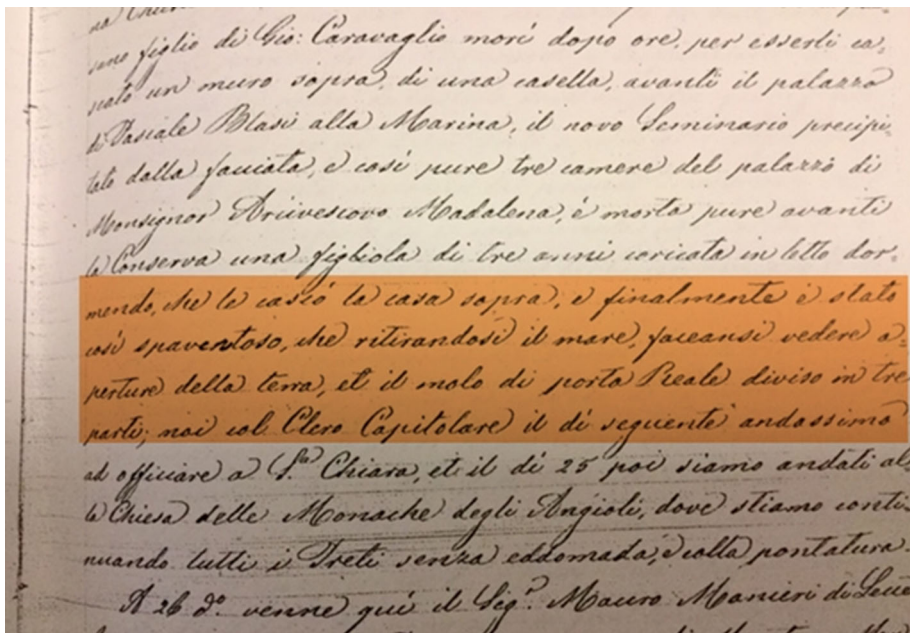 na Chiesa
sano figlio di Gio: Caravaglio morì dopo ore, per esserli ca,
scato un muro sopra, di una casella, avanti il palazzo
di Pasiale Blasi alla Marina, il novo Seminario precipi,
tato dalla facciata, e così pure tre camere del palazzo di
Monsignor Arcivescovo Madalena, è morta pure avanti
la Conserva una figliola di tre anni coricata in letto dor,
mendo, che le cascò la casa sopra, e finalmente è stato
così spaventoso, che ritirandosi il mare, faceansi vedere a,
perture della terra, et il molo di porta Reale diviso in tre
parti; noi col Clero Capitolare il dì seguente andassimo
ad officiare a S.ta Chiara, et il dì 25 poi siamo andati al,
la Chiesa delle Monache degli Angioli, dove stiamo conti,
nuando tutti i Preti senza eddomada, e colla pontatura.
A 26 d.o venne quì il Sig.r Mauro Manieri di Lecce